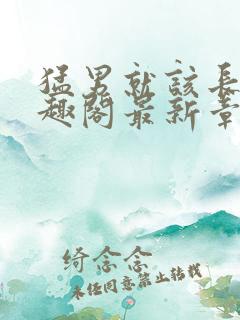 猛男就該長
趣閣最新章
绮念念
未经同意禁止转载